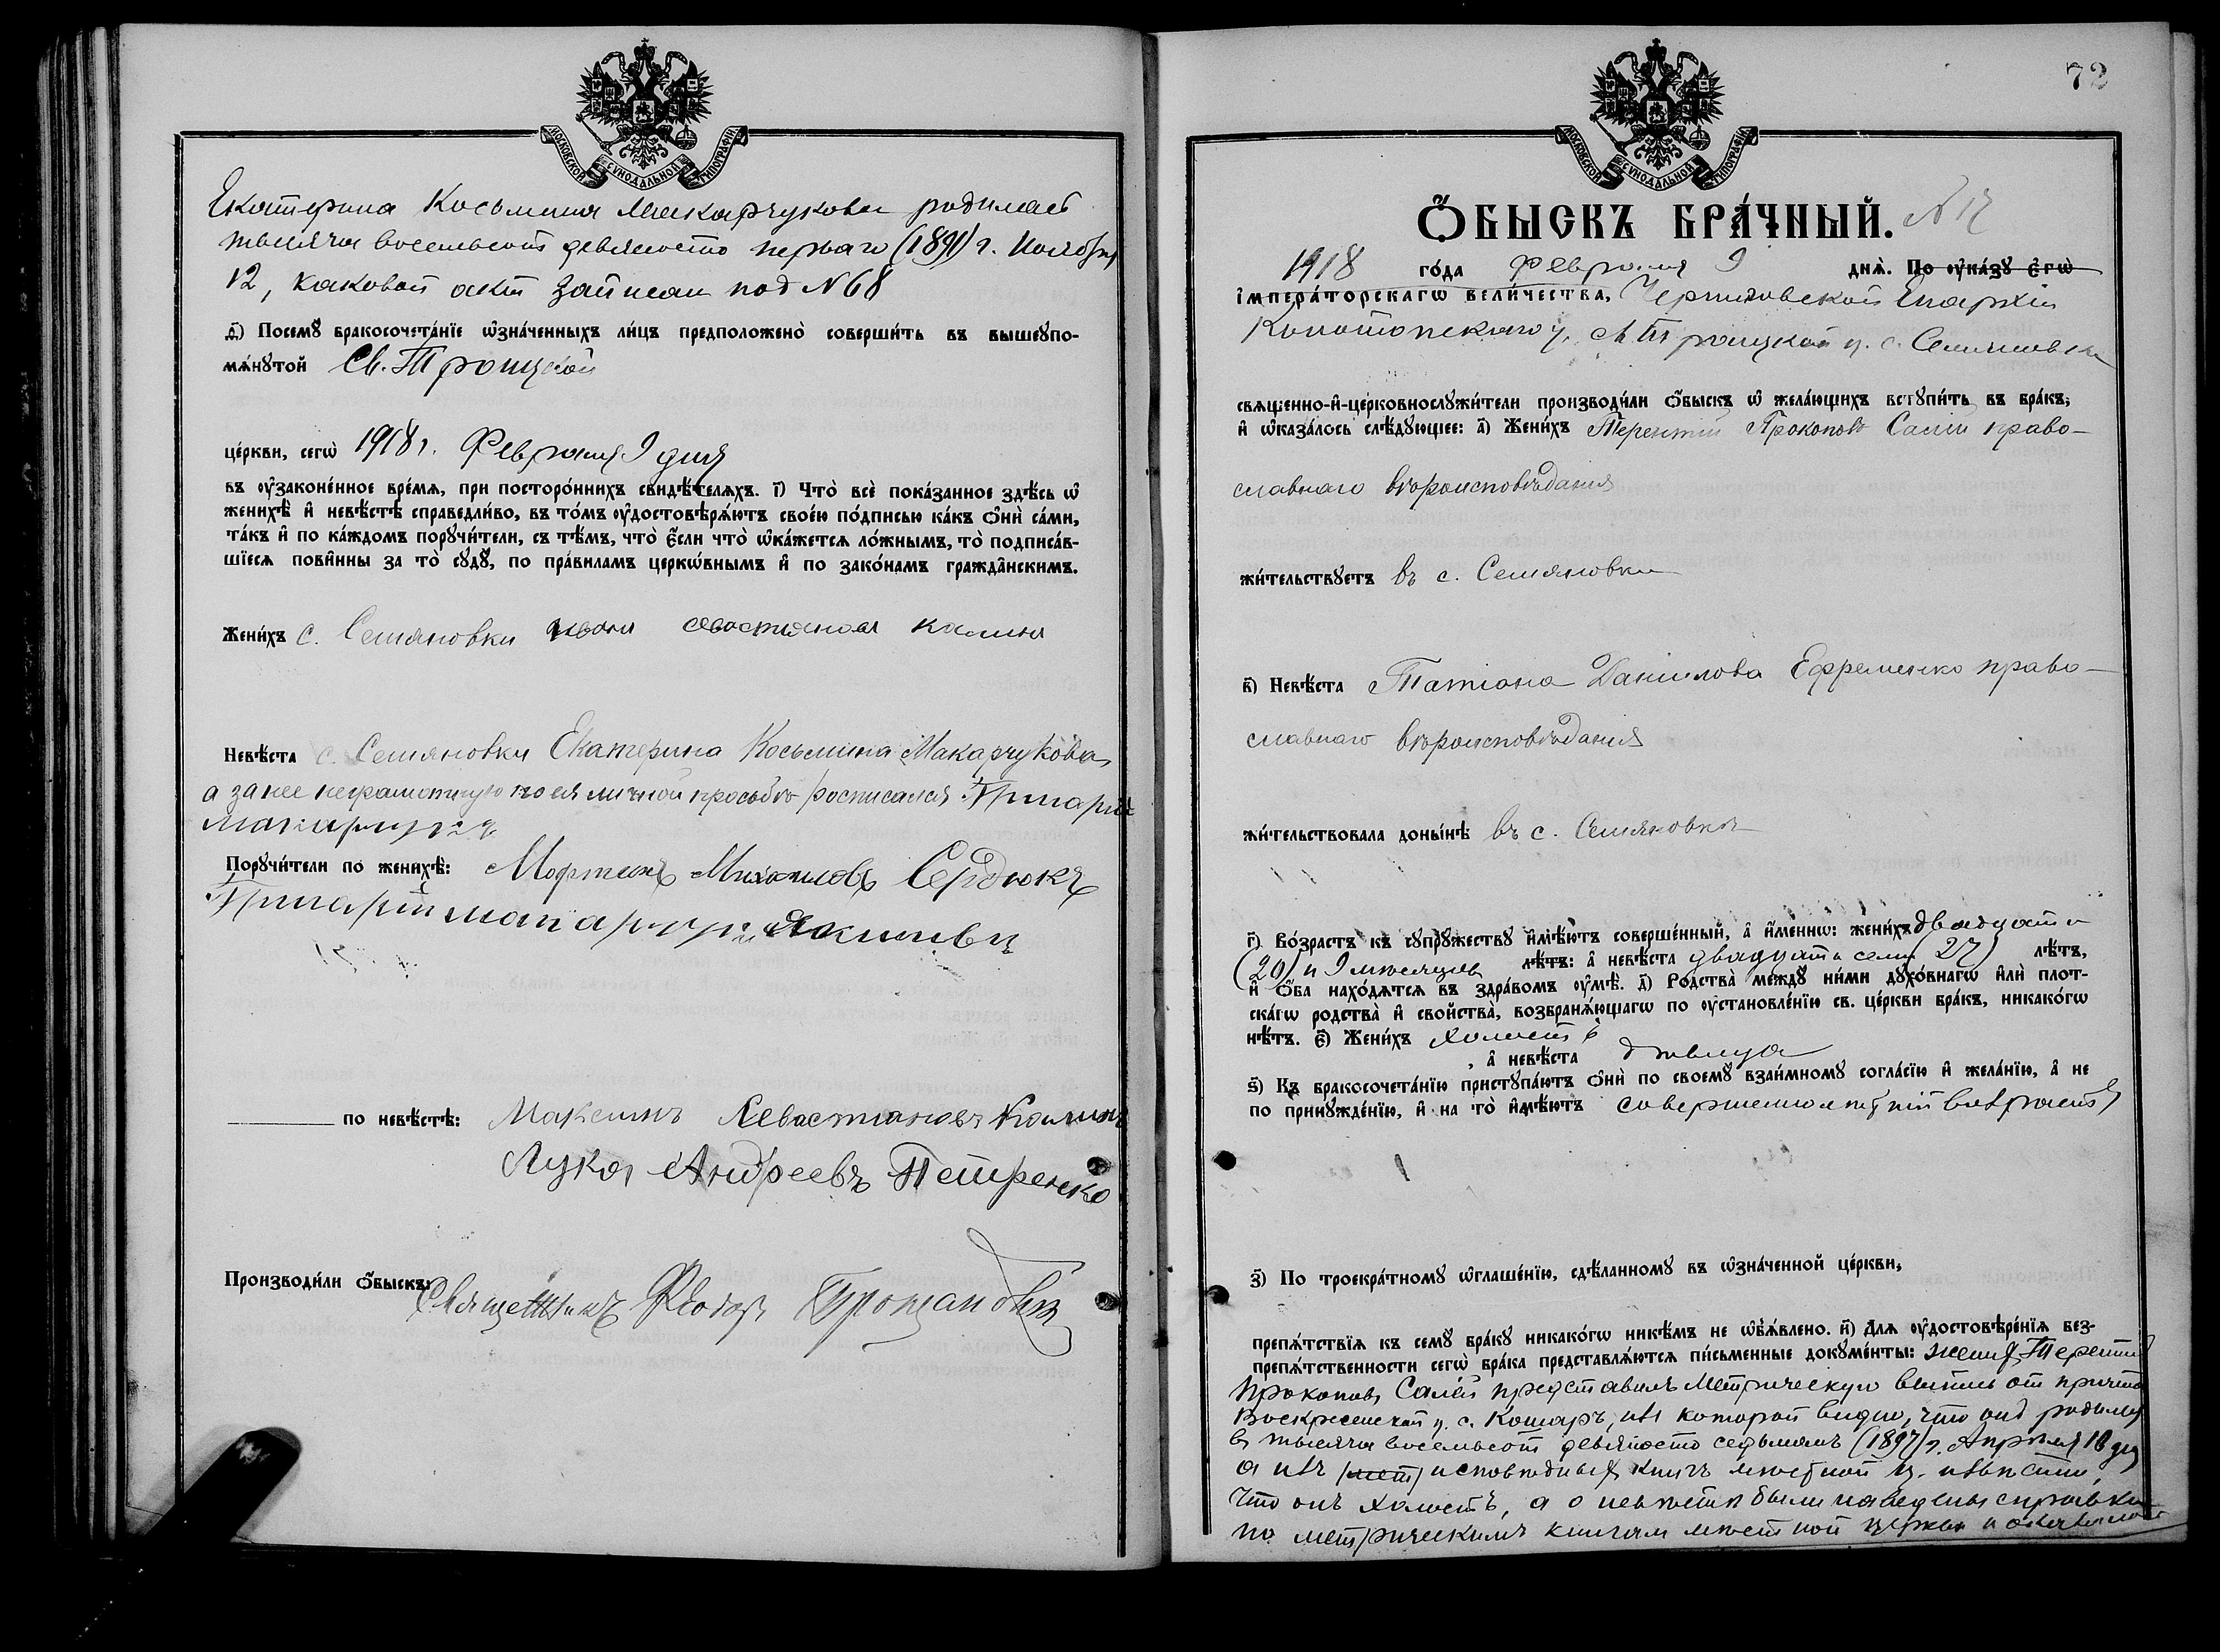 МОСКОВСКОЙ СѴНОДАЛЬНОЙ ТИПОГРАФІИ
Екатерина Косьмина Макарчукова родилась
тысяча восемьсотъ девяносто перваго (1891) г. Ноября
12, каковой актъ записан под N 68
д҃) Посемꙋ бракосочета́нїе ѡзна́ченныхъ ли́цъ предположено̀ соверши́ть въ вышеꙋпо-
мѧ́нꙋтой Св. Троицкой
це́ркви, сегѡ̀ 1918 г. Февраля 9 дня
въ ᲂу҆законе́нное вре́мѧ, при посторо́ннихъ свидѣ́телѧхъ. і҃) Что̀ всѐ пока́занное здѣ́сь ѡ҆
женихѣ̀ и҆ невѣ́стѣ справедли́во, въ то́мъ ᲂу҆достовѣрѧ́ютъ свое́ю по́дписью ка́къ ѻ҆нѝ са́ми,
та́къ и҆ по ка́ждомъ порꙋчи́тели, съ тѣ́мъ, что̀ є҆́сли что̀ ѡ҆ка́жетсѧ ло́жнымъ, то̀ подписа́в-
шїесѧ пови́нны за то̀ сꙋдꙋ̀, по пра́виламъ церкѡ́внымъ и҆ по зако́намъ гражда́нскимъ.
Жени́хъ с. Семяновки Севастиянов Калина
Невѣ́ста с. Семяновки Екатерина Косьмина Макарчукова,
а за нее неграмотную по ея личной просьбѣ росписался Григорій
Макарчукъ
Порꙋчи́тели по женихѣ̀: Мартинъ Михаиловъ Сердюкъ
Григорій Макарчукъ Якимовъ
по невѣ́стѣ: Максимъ Севастиановъ Калина
Лука Андреевъ Петренко
Производи́ли ѻ҆́быскъ: Священникъ Ѳеодоръ
72
МОСКОВСКОЙ СѴНОДАЛЬНОЙ ТИПОГРАФІИ
Ѻ҆́БЫСКЪ БРА́ЧНЫЙ. N 17
1918 го́да Февраля 9 днѧ̀. По ᲂу҆ка́зꙋ є҆гѡ̀
і҆мпера́торскагѡ вели́чества, Черниговской Епархіи
Конотопскаго у. Св. Троицкой ц. с. Семяновки
свѧще́нно-и҆-церковнослꙋжи́тели производи́ли ѻ҆́быскъ ѡ҆ жела́ющихъ встꙋпи́ть въ бра́къ,
и҆ ѡ҆каза́лось слѣ́дꙋющее: а҃) Жени́хъ Терентій Прокоповъ Салій право-
славнаго вѣроисповѣданія
жи́тельствꙋетъ въ с. Семяновки
в҃) Невѣ́ста Татіана Данилова Ефременко право-
славнаго вѣроисповѣданія
жи́тельствовала доны́нѣ въ с. Семяновкѣ
г҃) Во́зрастъ къ сꙋпрꙋ́жествꙋ и҆мѣ́ютъ соверше́нный, а҆ и҆́меннѡ: жени́хъ двадцати
(20) и 9 мѣсяцев лѣ́тъ: а҆ невѣ́ста двадцати семи 27) лѣ́тъ,
и҆ ѻ҆́ба нахо́дѧтсѧ въ здра́вомъ ᲂу҆мѣ̀. д҃) Родства̀ междꙋ̀ ни́ми дꙋхо́внагѡ и҆лѝ плот-
ска́гѡ родства̀ и҆ свойства̀, возбранѧ́ющагѡ по ᲂу҆становле́нїю св. це́ркви бра́къ, никако́гѡ
нѣ́тъ. є҃) Жени́хъ холостъ
, а҆ невѣ́ста дѣвица
ѕ҃) Къ бракосочета́нїю пристꙋпа́ютъ ѻ҆нѝ по своемꙋ̀ взаи́мномꙋ согла́сїю и҆ жела́нїю, а҆ не
по принꙋжде́нїю, и҆ на то̀ и҆мѣ́ютъ совершеннолѣтній возрастъ
з҃) По троекра́тномꙋ ѡ҆глаше́нїю, сдѣ́ланномꙋ въ ѡ҆зна́ченной це́ркви,
препѧ́тствїѧ къ семꙋ̀ бра́кꙋ никако́гѡ никѣ́мъ не ѡ҆б̾ѧ́влено. и҃) Длѧ ᲂу҆достовѣре́нїѧ без-
препѧ́тственности сегѡ̀ бра́ка представлѧ́ютсѧ пи́сьменные докꙋме́нты: жених Терентій
Прокоповъ Салій представилъ Метрическую выпись от причта
Воскресенской ц. с. Кошаръ, изъ которой видно, что онъ родился
въ тысяча восемьсотъ девяносто седьмомъ (1897) г. Апрѣля 10 дня
а изъ (мет) исповѣдныхъ книгъ мѣстной ц.
что онъ холостъ, а о невѣстѣ были наведены справки
по метрическимъ книгам мѣстной церкви и оказалось